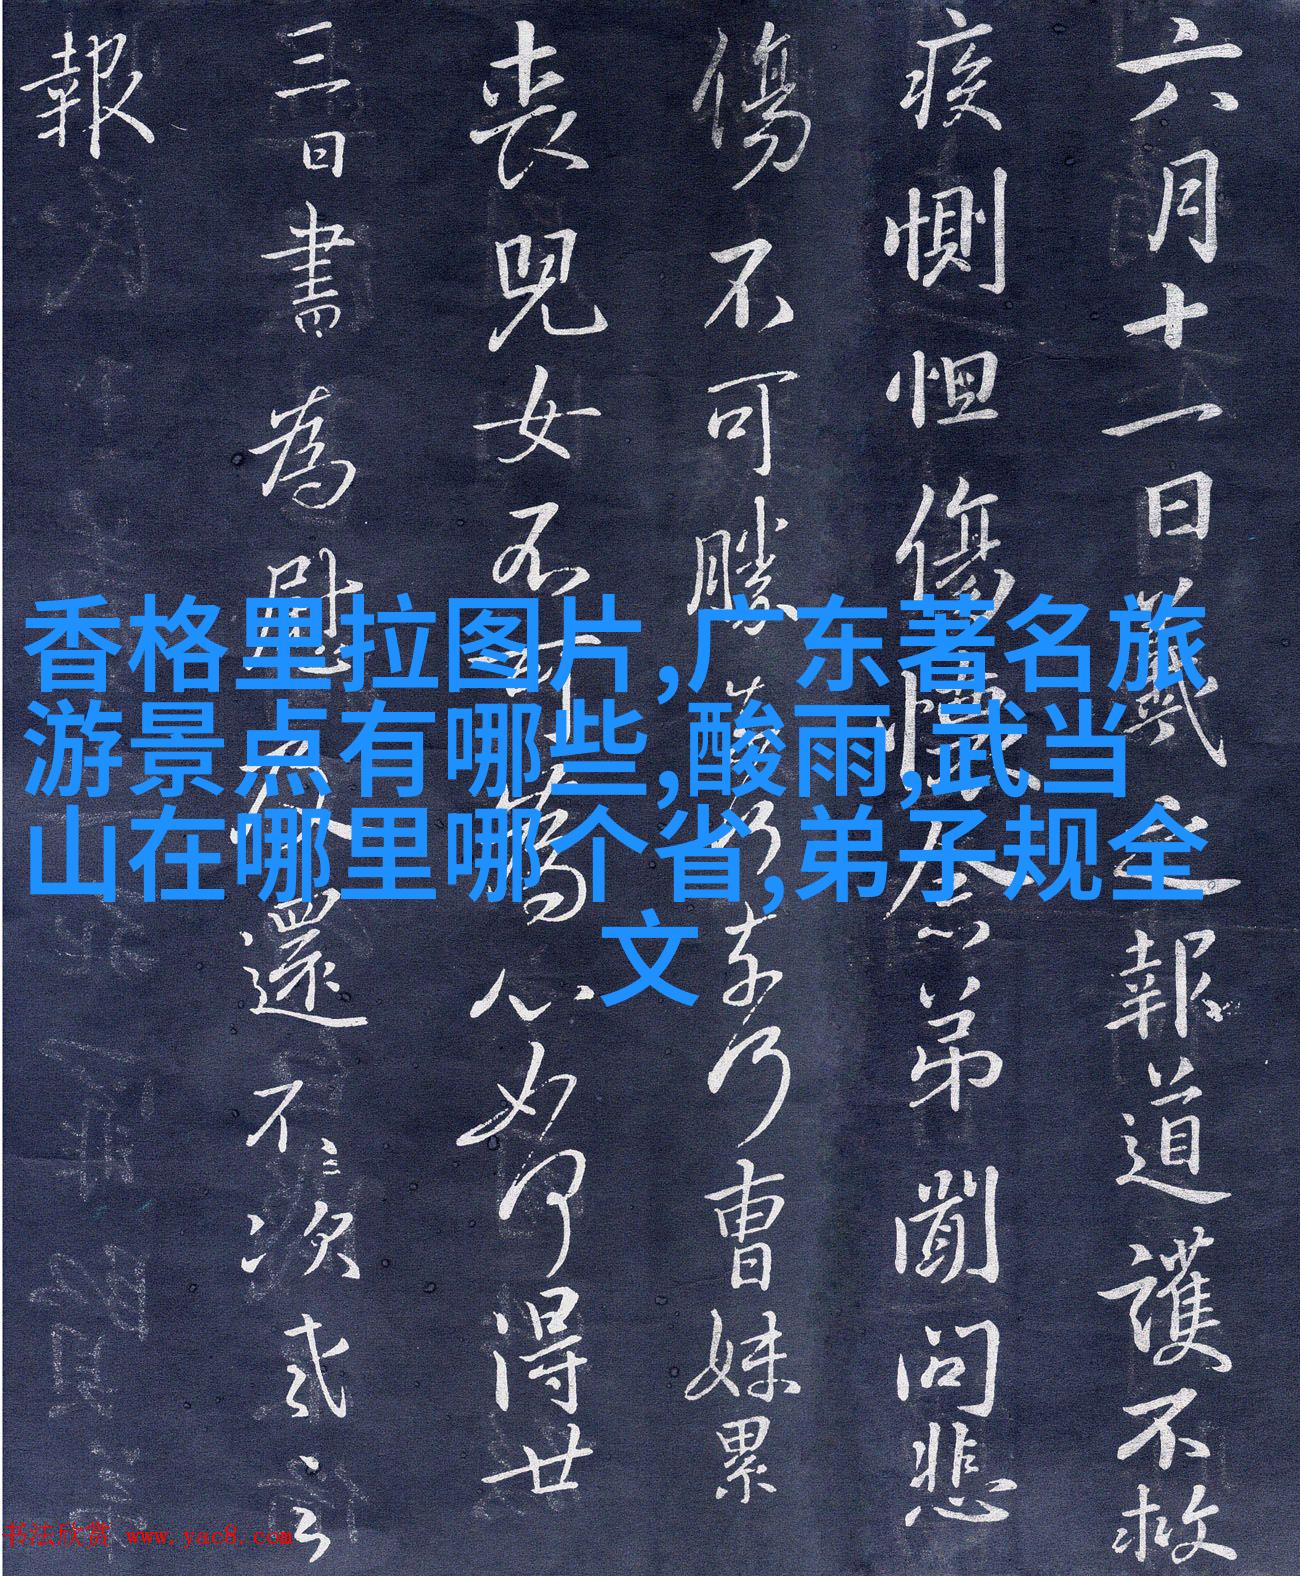 香格里拉图片,广东著名旅
游景点有哪些,酸雨,武当
山在哪里哪个省,弟子规全
文
六月十一日羲之報道護不救
疾惻怛傷懷念弟聞問悲
傷不可勝奈何奈何曹妹累
喪兒女不可為心如何得廿
三日書為慰及還不次羲之
報
书法欣赏 www.yac8.com